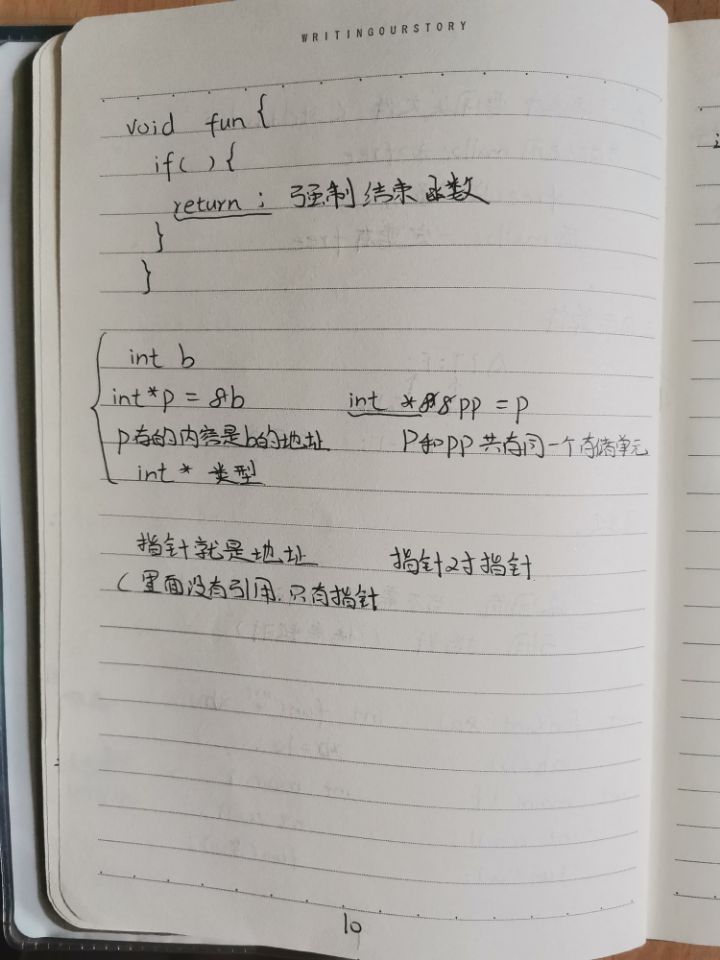 WRITINGOURSTORY
void fun{
if( ){
return; 强制结束函数
}
}
int b
int*p = &b
int *&pp = p
p存的内容是b的地址
P和pp共存同一个存储单元
int* 类型
指针就是地址
指针对指针
(里面没有引用.只有指针
10